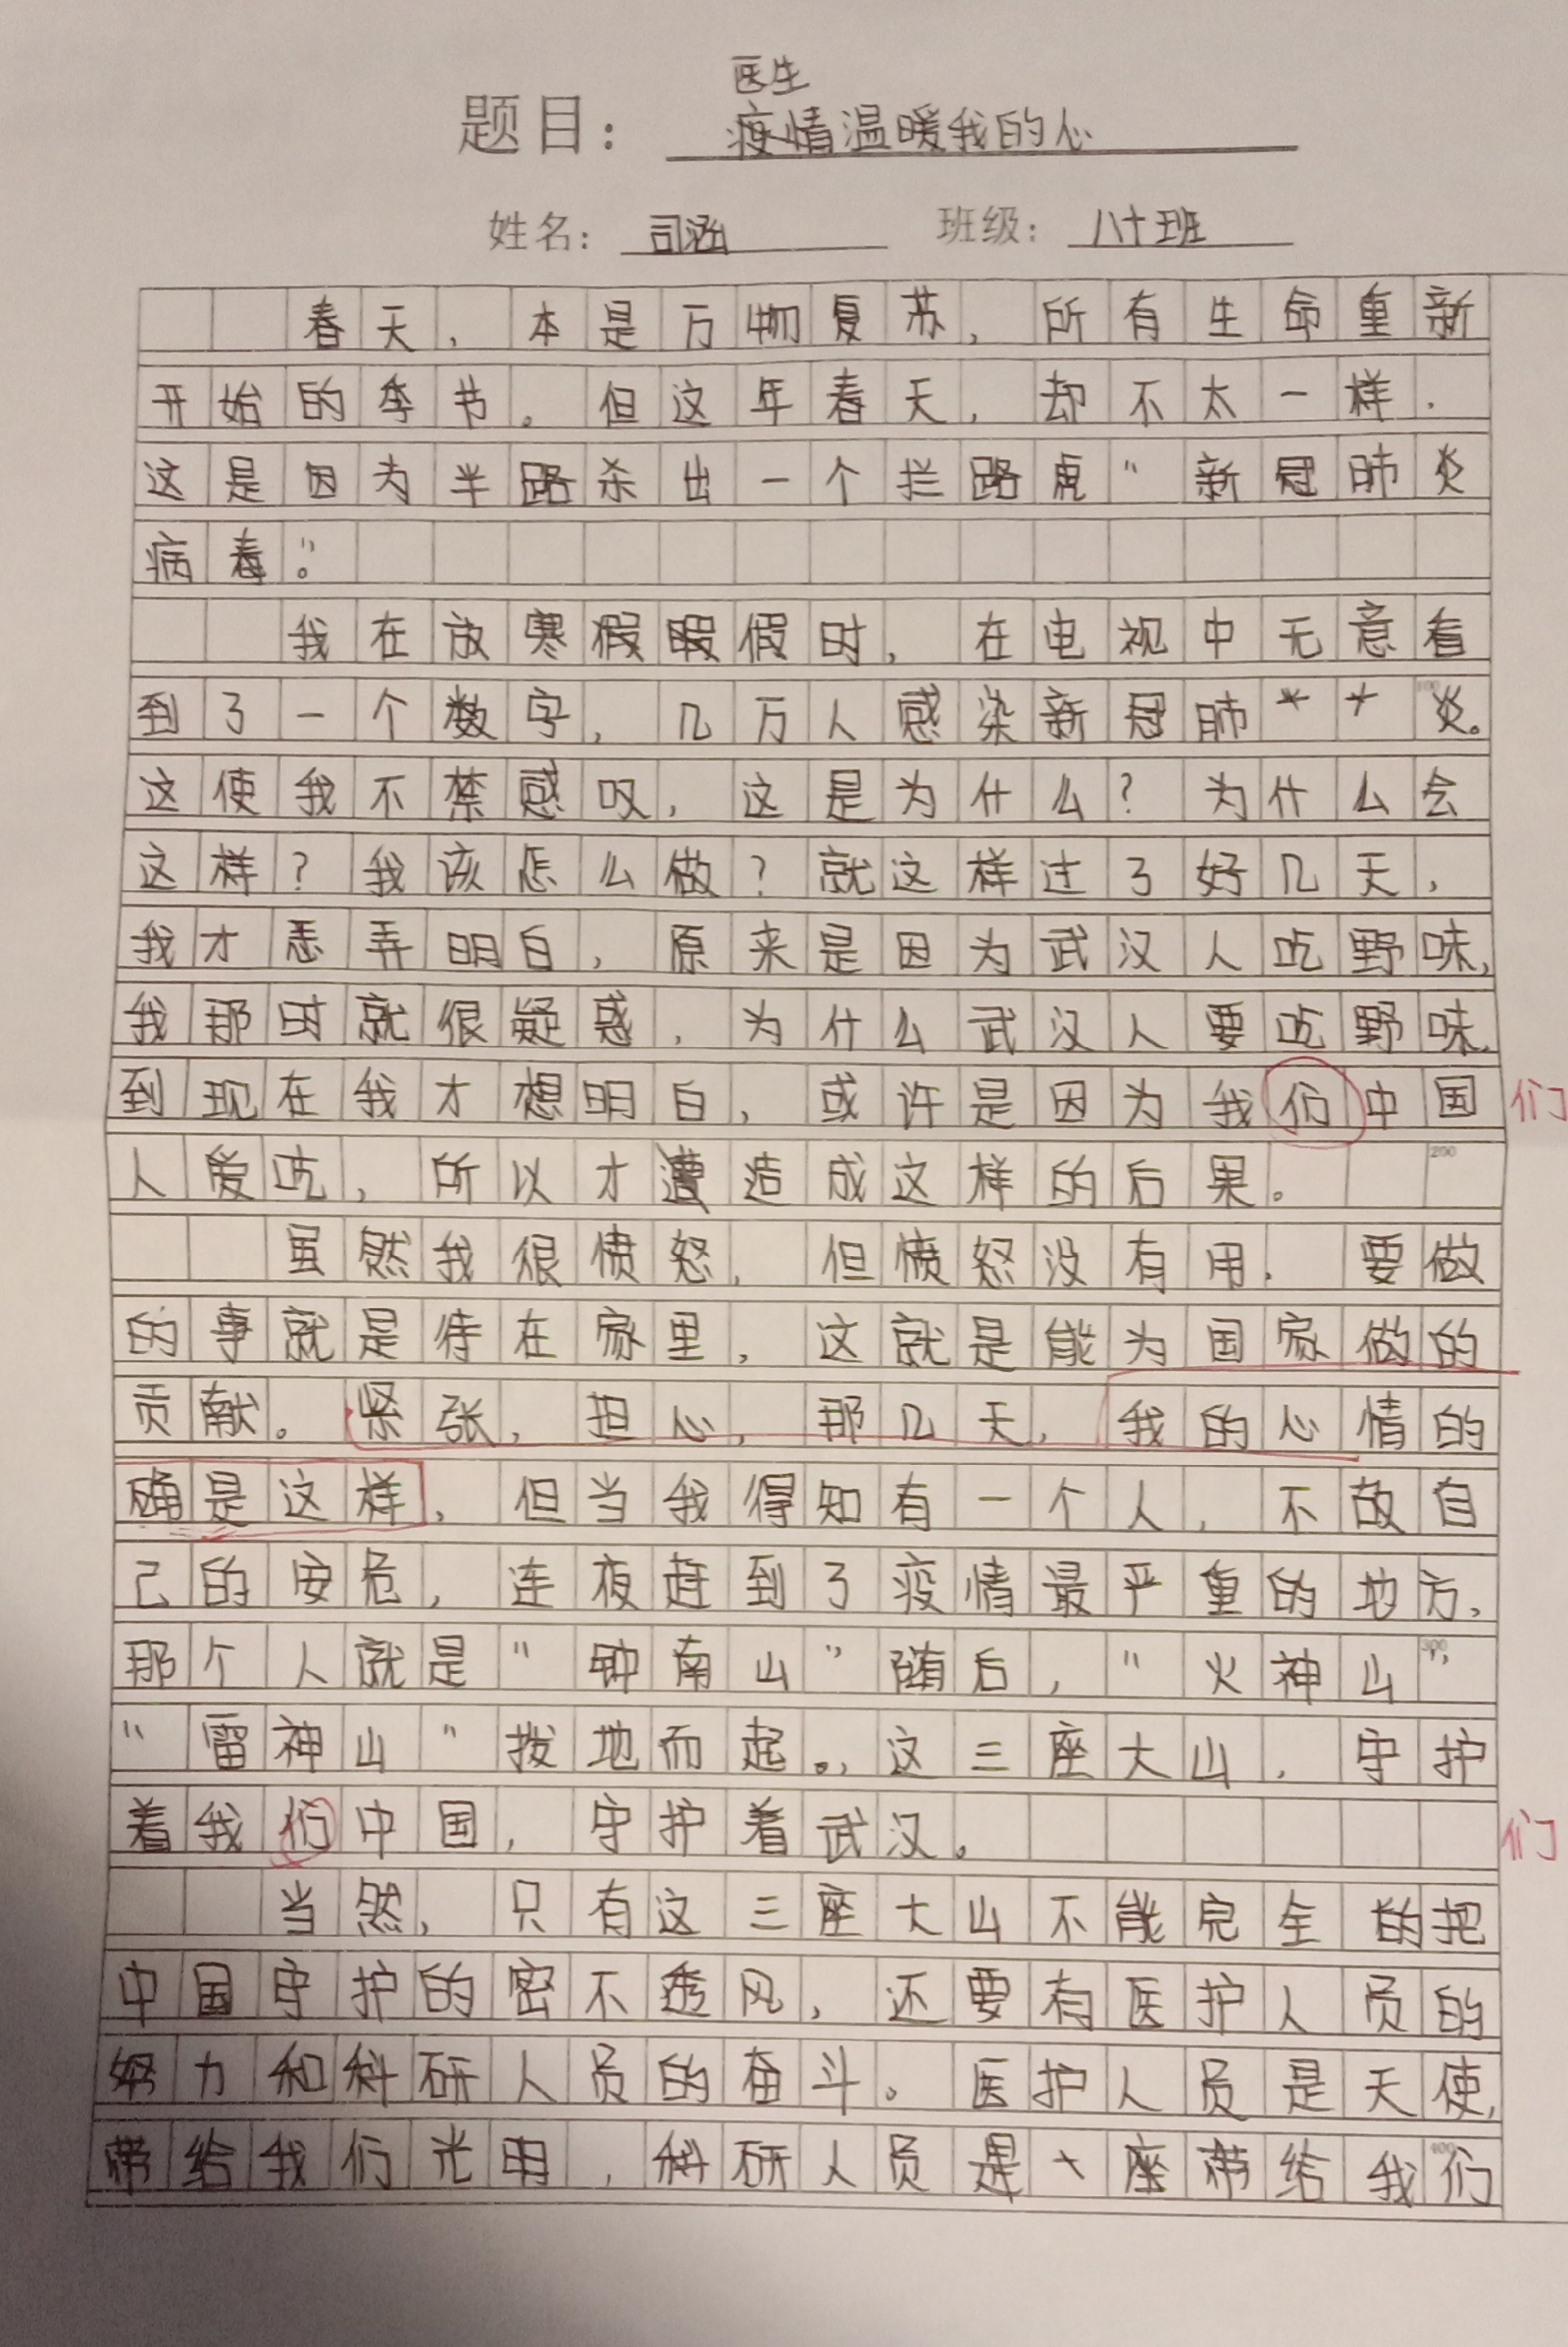 医生
题目：疫情温暖我的心
姓名：司涵 班级：八十班
春天，本是万物复苏，所有生命重新
开始的季节。但这年春天，却不太一样，
这是因为半路杀出一个拦路虎“新冠肺炎
病毒”。
我在放寒假暇假时，在电视中无意看
到了一个数字，几万人感染新冠肺炎。
这使我不禁感叹，这是为什么？为什么会
这样？我该怎么做？就这样过了好几天，
我才悉弄明白，原来是因为武汉人吃野味，
我那时就很疑惑，为什么武汉人要吃野味，
到现在我才想明白，或许是因为我们中国 们
人爱吃，所以才遭造成这样的后果。
200
虽然我很愤怒，但愤怒没有用，要做
的事就是待在家里，这就是能为国家做的
贡献。紧张，担心，那几天，我的心情的
确是这样，但当我得知有一个人，不故自
己的安危，连夜赶到了疫情最严重的地方，
那个人就是“钟南山”随后，“火神山”
300
“雷神山”拨地而起。，这三座大山，守护
着我们中国，守护着武汉。 们
当然，只有这三座大山不能完全的把
中国守护的密不透风，还要有医护人员的
努力和科研人员的奋斗。医护人员是天使，
带给我们光明，科研人员是大座带给我们
400